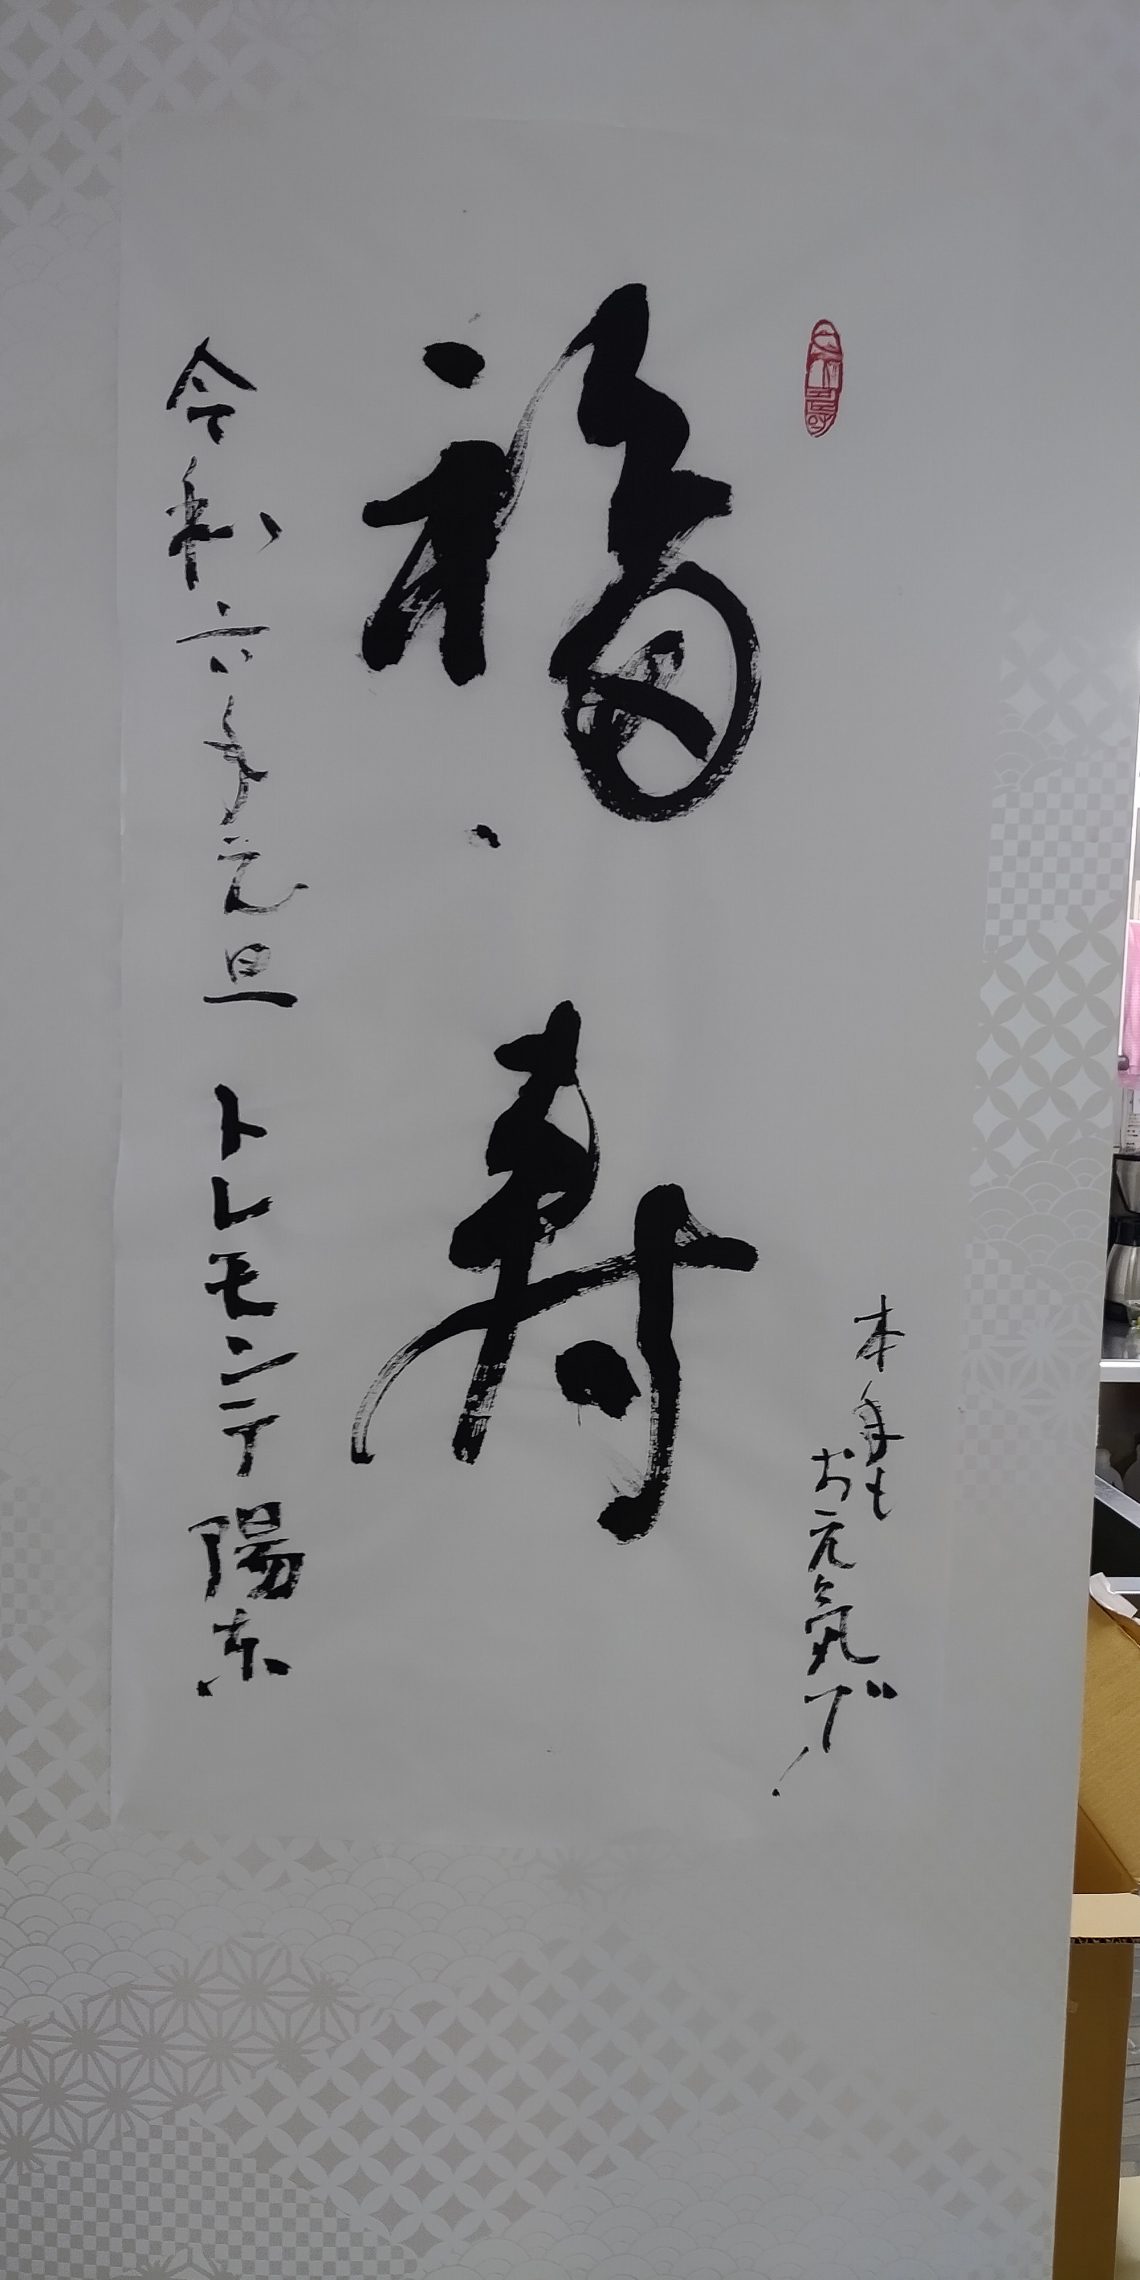 本年も
お元気で！
福寿
令和六年元旦 トレモンテ陽东